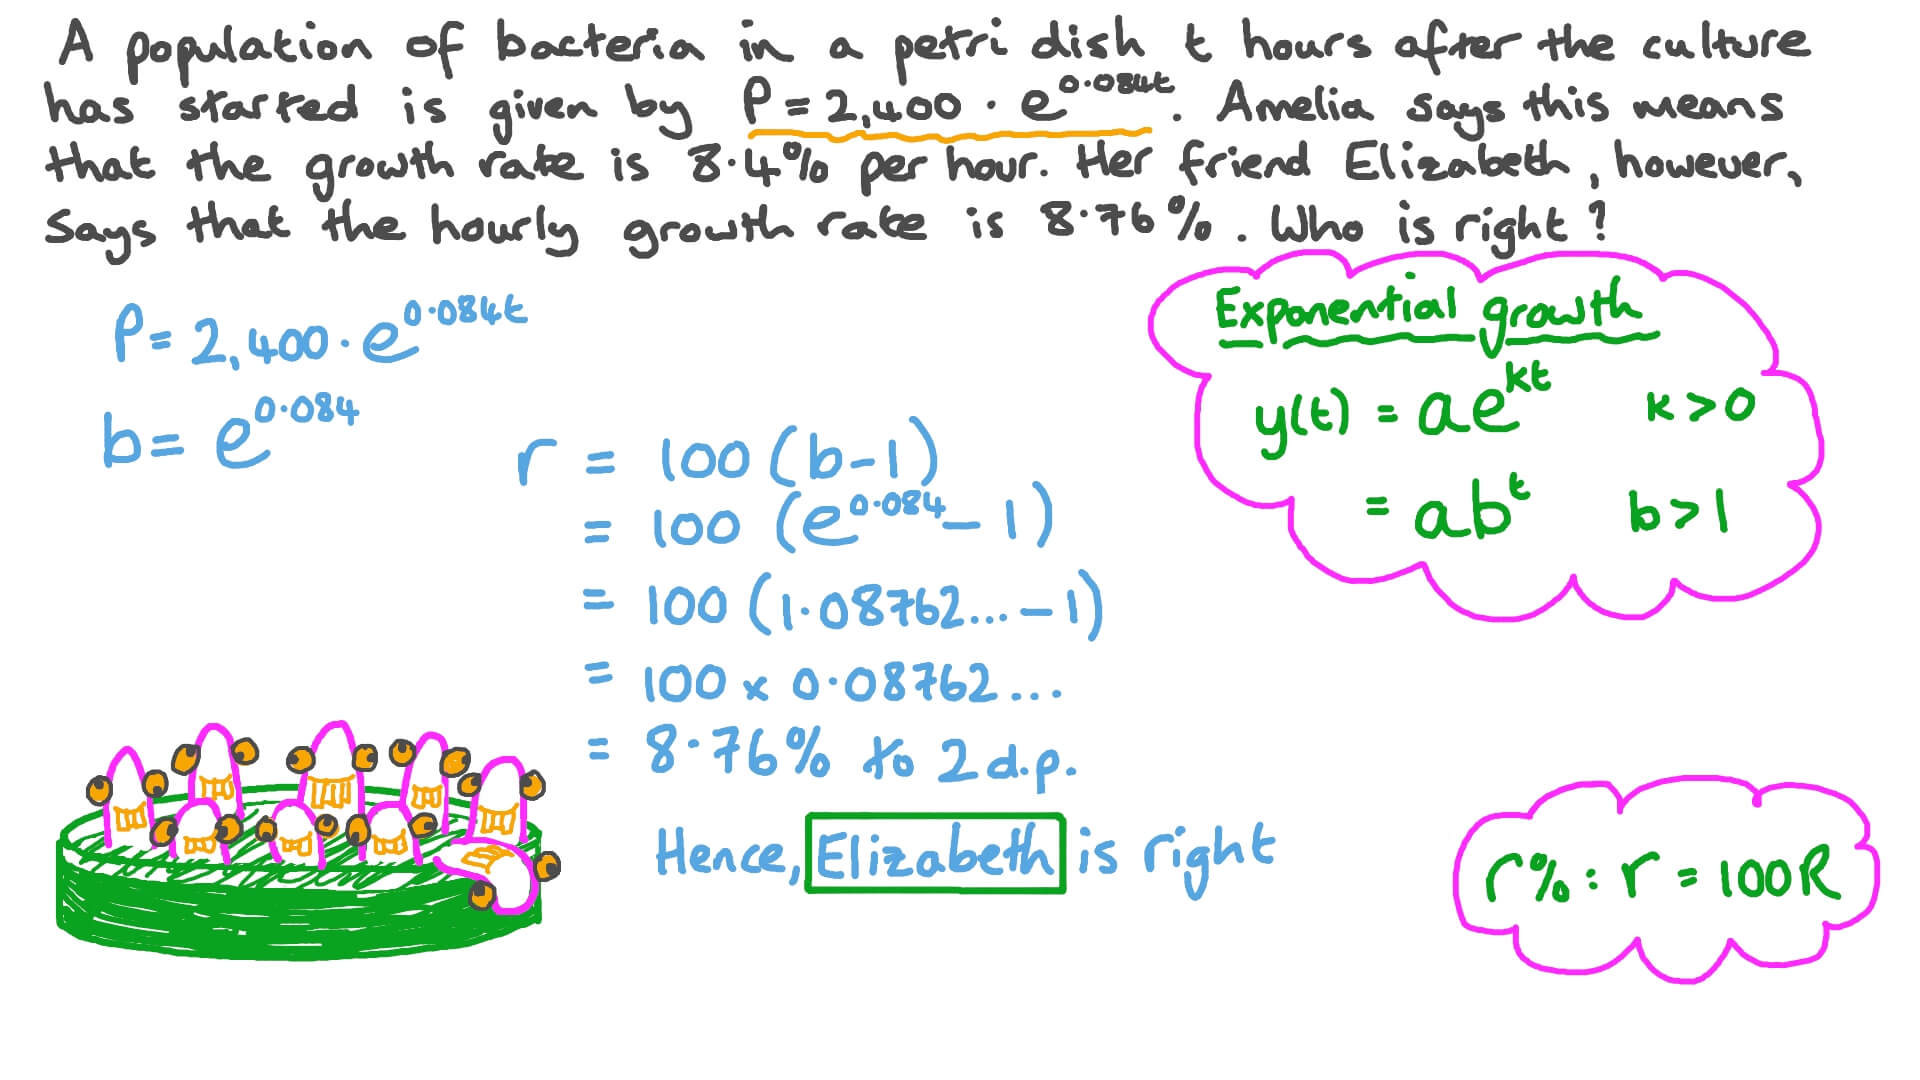 A population of bacteria in a petri dish t hours after the culture
has started is given by P = 2,400 · e^0.084t. Amelia says this means
that the growth rate is 8.4% per hour. Her friend Elizabeth, however,
says that the hourly growth rate is 8.76%. Who is right?
P = 2,400 · e^0.084t
b = e^0.084
r = 100 (b-1)
= 100 (e^0.084 - 1)
= 100 (1.08762... - 1)
= 100 x 0.08762...
= 8.76% to 2 d.p.
Hence, Elizabeth is right
Exponential growth
y(t) = ae^kt k > 0
= ab^t b > 1
r% : r = 100R